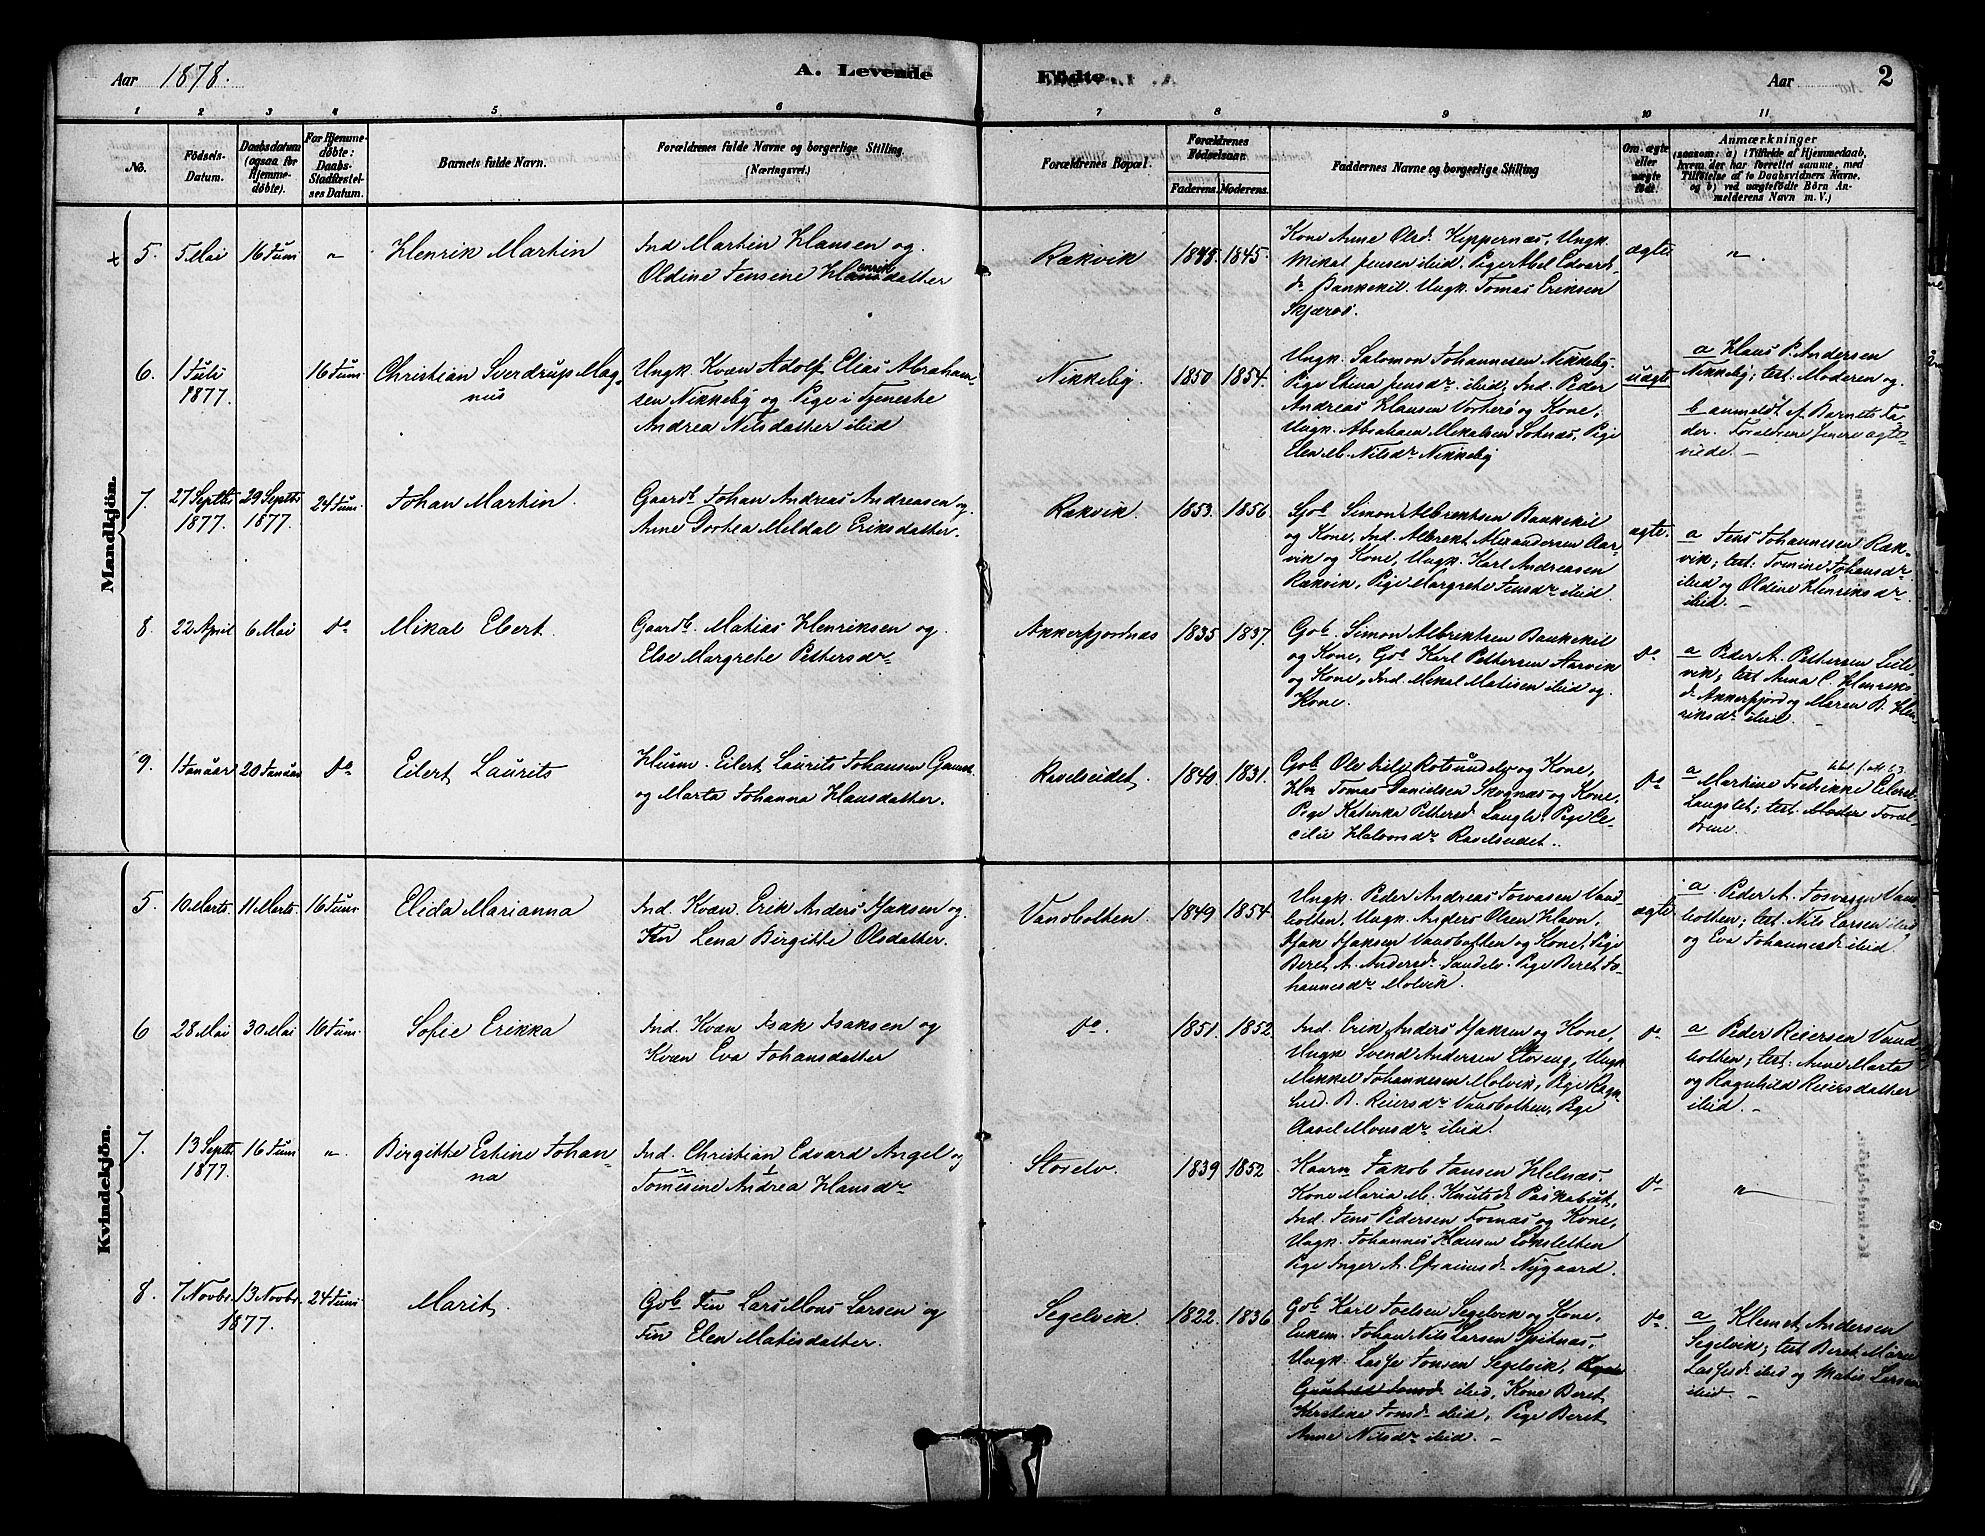 Aar 1878. A. Levende Födte. Aar 2
1 2 3 4 5 6 7 8 9 10 11
No.
Födsels-
Datum.
Daabsdatum
(ogsaa for
Hjemme-
døbte).
For Hjemme-
døbte:
Daabs-
Stadfæstel-
ses Datum.
Barnets fulde Navn.
Forældrenes fulde Navne og borgerlige Stilling.
(Næringsvei.)
Forældrenes Bopæl.
Forældrenes
Fødselsaar.
Faderens. Moderens.
Faddernes Navne og borgerlige Stilling
Om ægte
eller
uægte
født.
Anmærkninger
(saasom: a) i Tilfælde af Hjemmedaab,
hvem der har forrettet samme, med
Tilføielse af to Daabsvidners Navne.
og b) ved uægtefødte Börn An-
melderens Navn m. V.)
Mandkjön.
5. 5 Mai 16 Juni " Henrik Martin
Ind Martin Hansen og
Oldine Jensine Henrikdatter
Rækvik 1848. 1845.
Kone Anne Olsd. Kippernæs, Ungk.
Mikal Jensen ibid. Pige Abel Edvards
dr. Bankekil. Ungk. Tomas Eriksen
Skjærvö.
ægte "
6. 1 Juli
1877. 16 Juni Christian Sverdrup Mag-
nus
Ungk. Kvæn Adolf Elias Abraham-
sen Nikkeby og Pige i Tjeneste
Andrea Nilsdatter ibid
Nikkeby 1850 1854.
Ungk. Salomon Johannesen Nikkeby.
Pige Stina Jensdr. ibid, Ind. Peder
Andreas Hansen Vorterö og Kone,
Ungk. Abraham Mikalsen Sotnæs, Pige
Elen M. Nilsdr Nikkeby
uægte
a Hans P. Andersen
Nikkeby; test. Moderen og
b anmeldt af Barnets Fa-
der. Forældrene senere ægte-
viede. —
7. 27 Septbr 29 Septbr 24 Juni Johan Martin.
1877. 1877.
Gaardb. Johan Andreas Andreasen og
Anne Dorthea Meldal Eriksdatter.
Rækvik 1853. 1856
Gob Simon Albrektsen Bankekil
og Kone, Ind. Albrekt Alexandersen Aar-
vik og Kone, Ungk. Karl Andreasen
Rækvik, Pige Margrete Jensdr ibid.
ægte.
a Jens Johannesen Ræk-
vik; test. Tomine Johansdr
ibid og Oldine Henriksdr.
ibid. —
8. 22 April 6 Mai do Mikal Ebert.
Gaardb. Matias Henriksen og
Else Margrete Pettersdr
Akkerfjordnæs 1835 1837.
Gob. Simon Albrektsen Bankekil
og Kone, Gob Karl Pettersen Aarvik
og Kone, Ind. Mikal Matisen ibid og
Kone.
do
a Peder A. Pettersen
vik; test Anna C. Henriks
dr Akkerfjord og Maren B. Hen-
riksdr ibid.
9. 1 Januar 20 Januar do Eilert Laurits
Husm. Eilert Laurits Johansen
og Marta Johanna Hansdatter.
Ravelseidet. 1840. 1831.
Gob. Ole Rotsundelv og Kone,
Tomas Danielsen Skognæs og Kone,
Pige Katinka Pettersd. Langsl. Pige Ce-
cilie Halvorsdr Ravelseidet.
do
a Martine Fredrikke
Langslet; test. Moder Foræl-
drene.
Kvindekjön.
5. 10 Marts. 11 Marts. 16 Juni Elida Marianna
Ind. Kvæn. Erik Anders Isaksen og
Fin Lena Birgitte Olsdatter.
Vandbotten. 1849 1854.
Ungk. Peder Andreas Josvasen Vand-
botten, Ungk. Anders Olsen Havn,
Isak Isaksen Vandbotten og Kone, Pige
Beret A. Andersdr. Pige Beret Jo-
hannesdr Molvik.
ægte
a. Peder A. Josvasen Van-
botten; test. Nils Larsen ibid
og Eva Johannesdr ibid
6 28 Mai 30 Mai 16 Juni Sofie Erikka
Ind. Kvæn Isak Isaksen og
Kvæn Eva Johansdatter
do. 1851. 1852
Ind. Erik Anders Isaksen og Kone,
Ungk Svend Andersen Storeng, Ungk
Mikkel Johannesen Molvik, Pige Ragn-
hild. B. Reiersdr Vandbotten, Pige
Aasel Monsdr ibid.
do
a Peder Reiersen Vand
botten; test: Anne Marta
og Ragnhild Reiersdatter
ibid. —
7. 13 Septbr 16 Juni " Birgitte Estine Johan-
1877. na
Ind. Christian Edvard Angel og
Tomesine Andrea Hansdr
Storelv. 1839 1852
Jakob Jansen Helnæs,
Kone Maria M. Knutsd.
Ind. Jens Pedersen Tornæs og Kone,
Ungk. Johannes Hansen Löksletten
Pige Inger A. Efraimsd. Nygaard.
do "
8. 7 Novbr 13 Novbr. 24 Juni Marit,
1877.
Gob Fin Lars Mons Larsen og
Fin Elen Matisdatter.
Segelvik. 1822. 1836
Gob Karl Joelsen Segelvik og Kone,
Enkem. Johan Nils Larsen Spitnæs,
Ungk: Lasse Jonsen Segelvik,
ibid, Kone Beret
Kerstine Jonsdr ibid, Pige Beret
Anne Nilsdr ibid. —
do.
a Klemet Andersen
Segelvik; test Beret Marie
Lassesdr ibid og Matis Larsen
ibid —